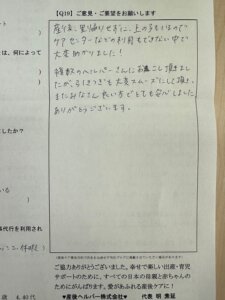 【Q19】ご意見・ご要望をお願いします
産後、里帰りせずに、上の子もいるので
ケアセンターなどの利用もできない中で
大変助かりました！
複数のヘルパーさんにお世話して頂きまし
たが、引きつぎも大変スムーズにして頂き、
またみなさん良い方でとても安心しました。
ありがとうございます。
は、何によって
したか？
いる
事代行を利用され
ご協力ありがとうございました。幸せで楽しい出産・育児
サポートのために、すべての日本の母親と赤ちゃんの
ためにがんばります。愛があふれる産後ケアに！
♥産後ヘルパー株式会社♥ 代表 明 素延